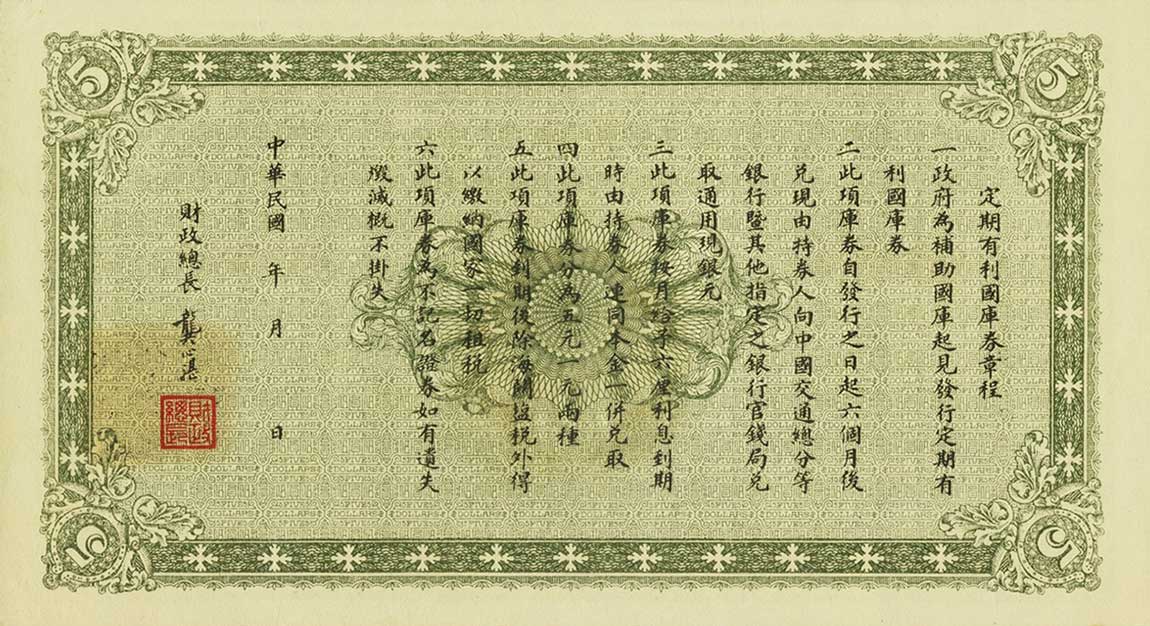 5
5
定期有利國庫券章程
一政府為補助國庫起見發行定期有
利國庫券
二此項庫券自發行之日起六個月後
兌現由持券人向中國交通總分等
銀行暨其他指定之銀行官錢局兌
取通用現銀元
三此項庫券按月給予六厘利息到期
時由持券人連同本金一併兌取
四此項庫券分為五元一元兩種
五此項庫券到期後除海關鹽稅外得
以繳納國家一切租稅
六此項庫券為不記名證券如有遺失
燬滅概不掛失
中華民國 年 月 日
財政總長 龔心湛
財政總長
5
5